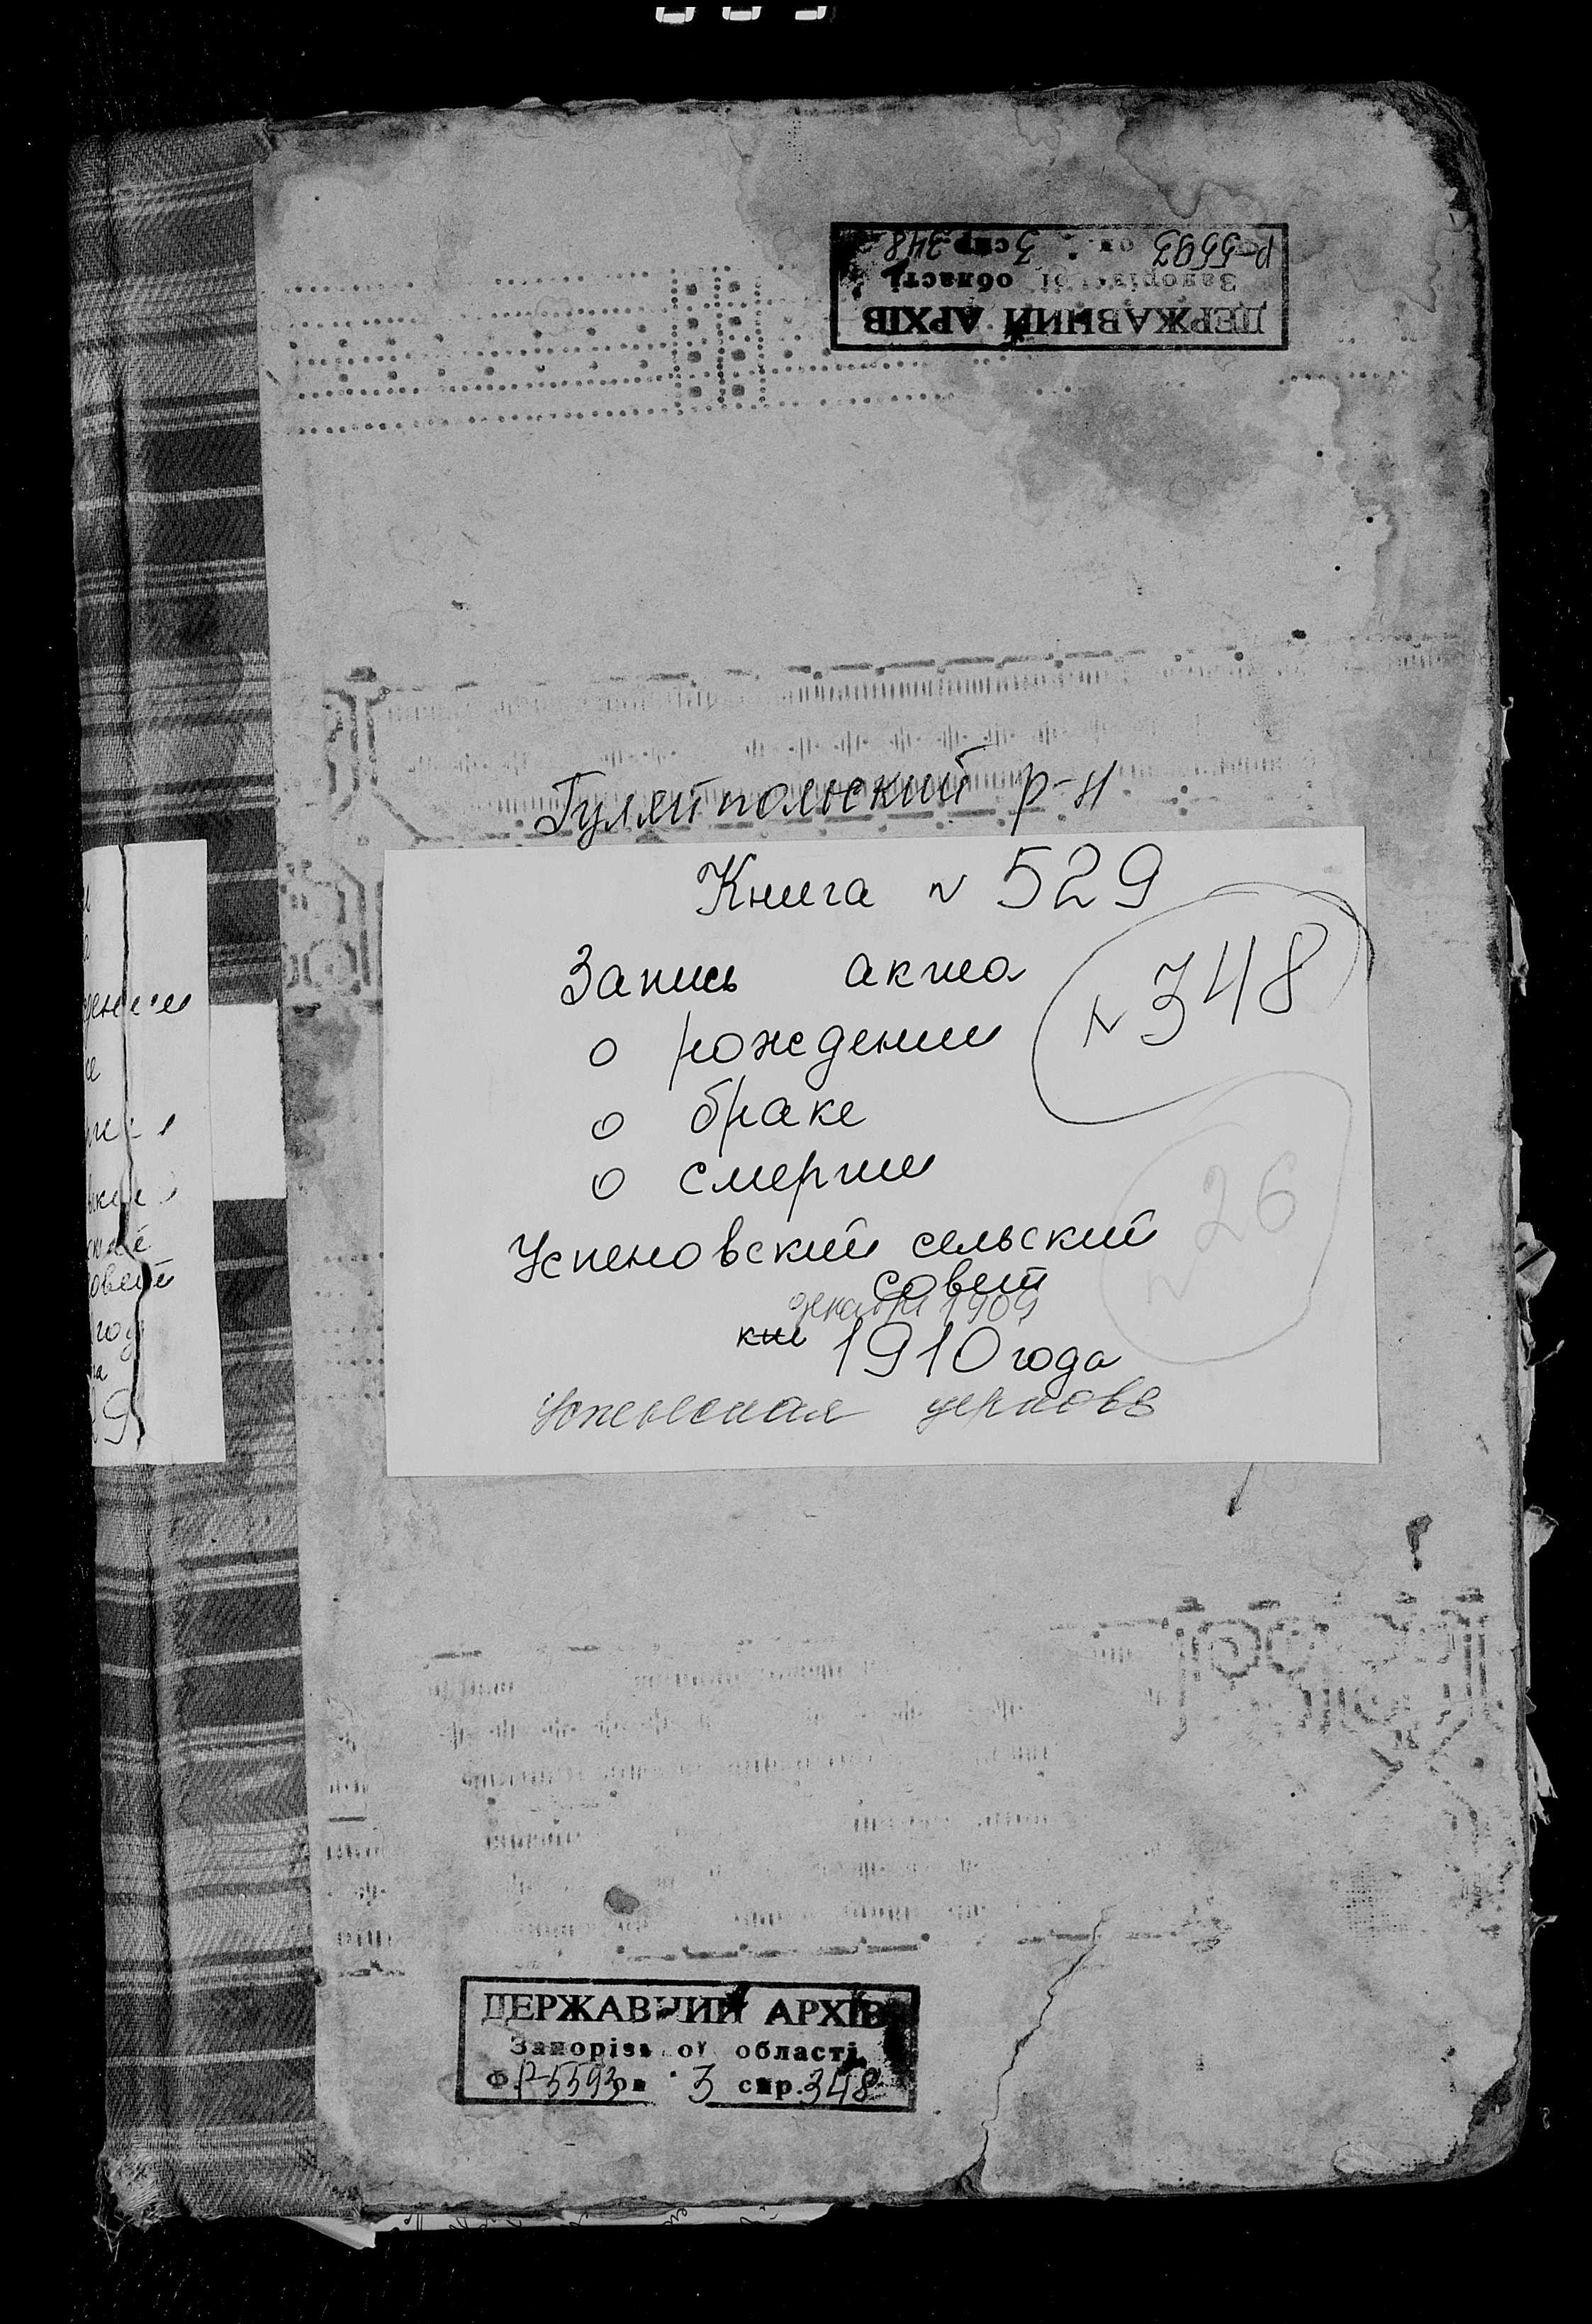 Р-5593 оп. 3 спр. 348
Запорізької області
ДЕРЖАВНИЙ АРХІВ
Гуляйпольский р-н
Книга N 529
Запись акта
N 348
о рождении
о браке
о смерти
N 26
Успеновский сельский
совет
декабрь 1909
1910 года
Успенская церковь
ДЕРЖАВНИЙ АРХІВ
Запорізької області
Ф. Р-5593 оп. 3 спр. 348